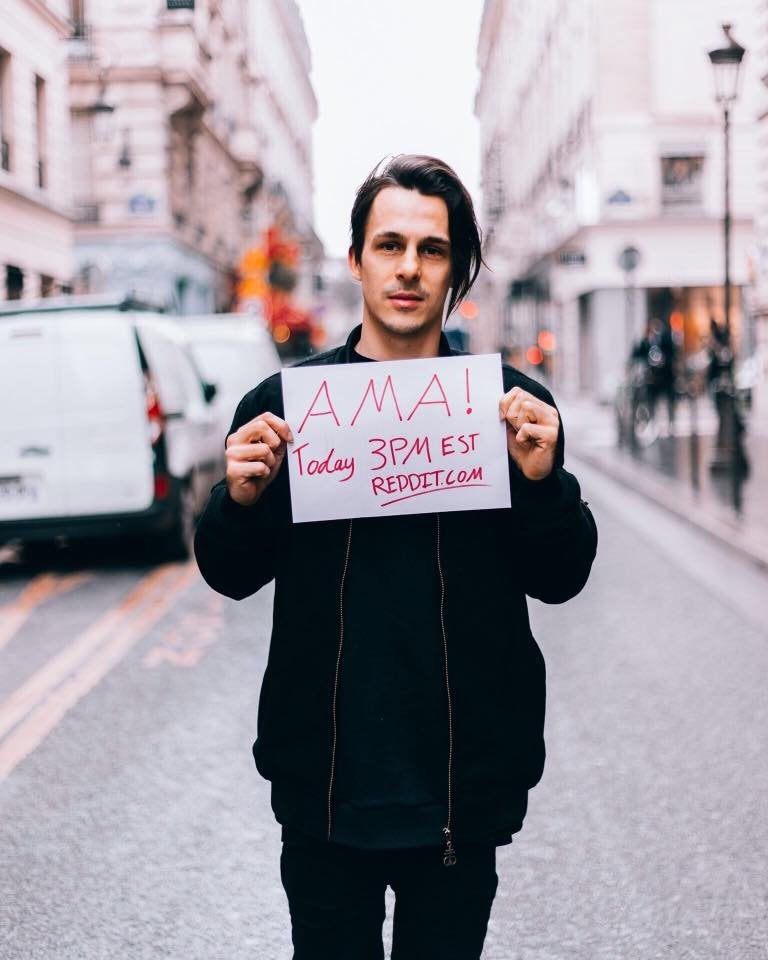 AMA!
Today 3PM EST
REDDIT.COM